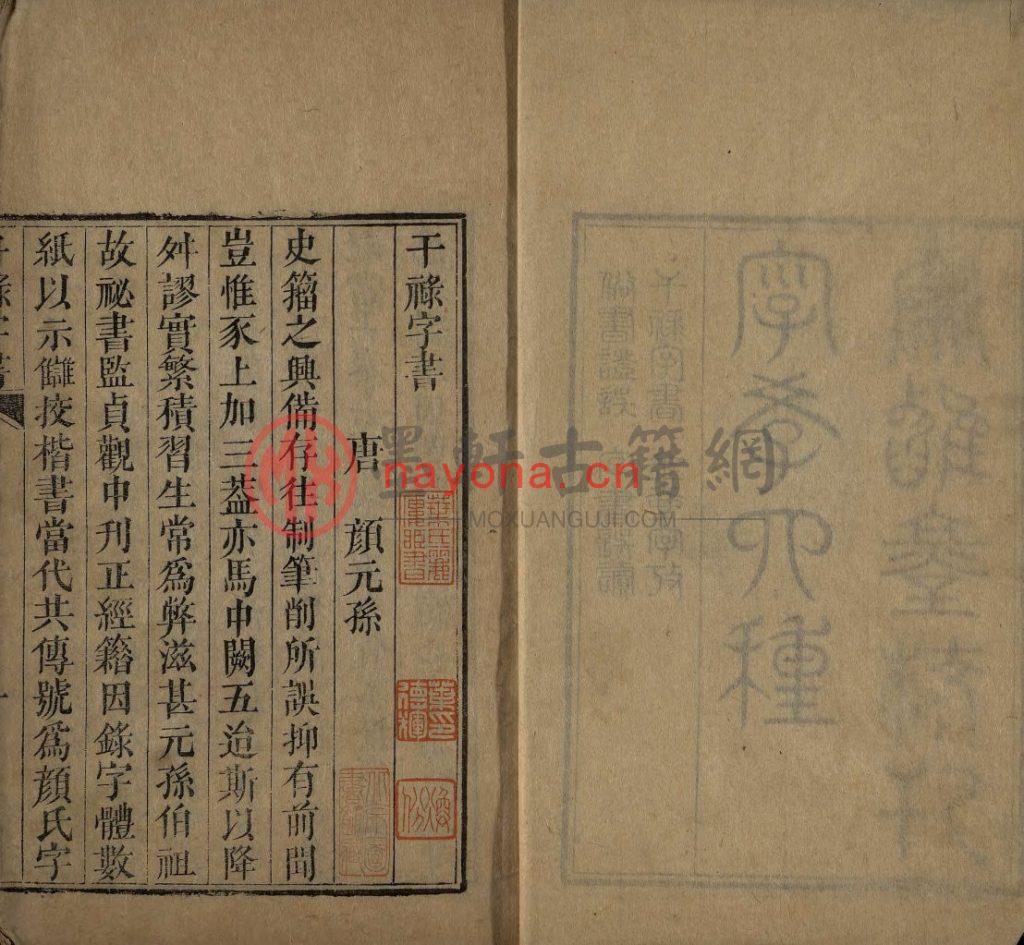 字學四種
干祿字書
俗書證誤 字書誤讀
干祿字書
葉氏麗廔臧書
葉印德輝
唐 顏元孫
史籀之興備存往制筆削所誤抑有前聞
豈惟豕上加三葢亦馬中闕五迨斯以降
舛謬實繁積習生常爲弊滋甚元孫伯祖
故祕書監貞觀中刊正經籍因錄字體數
紙以示讎挍楷書當代共傳號爲顏氏字
干祿字書
一
墨軒古籍網
nayona.cn
MOXUANGUJI.COM